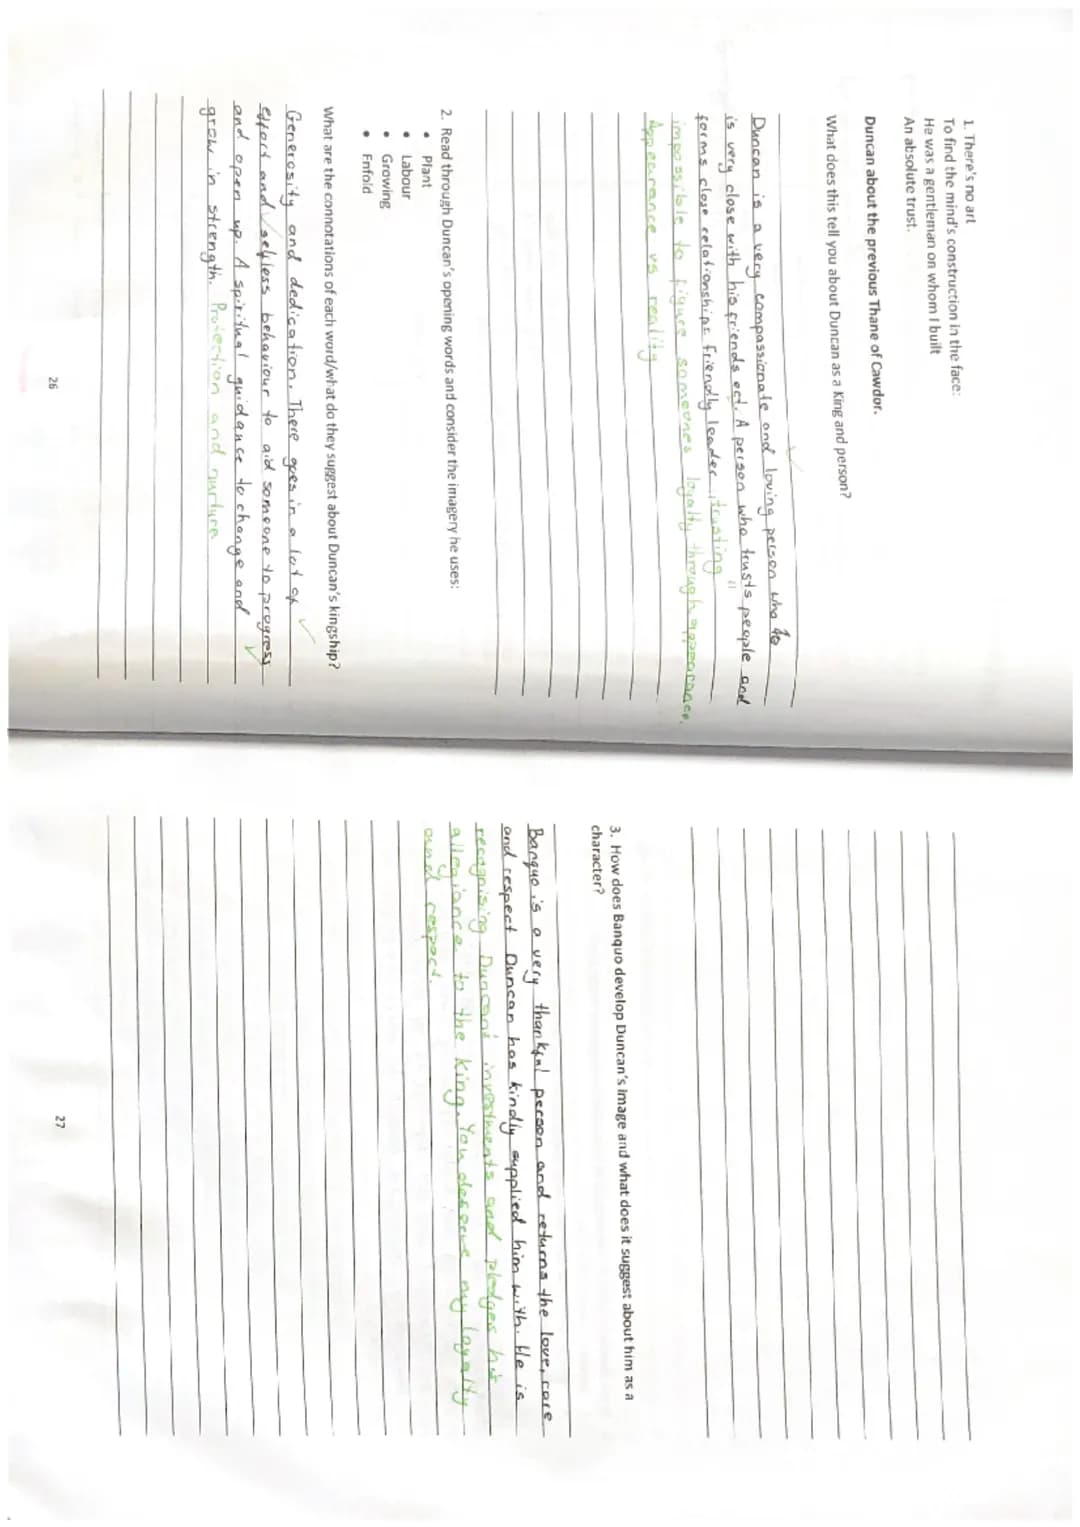 1. There's no art
To find the mind's construction in the face:
He was a gentleman on whom I built
An absolute trust.
Duncan about the previous Thane of Cawdor.
What does this tell you about Duncan as a King and person?
Duncan is a very compassionate and loving person who
is very close with his friends ect. A person who trusts people and
forms close relationships. friendly leader, trusting
impossible to figure someones loyalty through appearance.
Appearance vs reality
2. Read through Duncan's opening words and consider the imagery he uses:
• Plant
• Labour
• Growing
• Enfold
What are the connotations of each word/what do they suggest about Duncan's kingship?
Generosity and dedication. There goes in a lot of
effort and selfless behaviour to aid someone to progress
and open up. A spiritual guidance to change and
grow in strength. Protection and nurture
26
3. How does Banquo develop Duncan's image and what does it suggest about him as a
character?
Banquo is a very thankful person and returns the love, care
and respect Duncan has kindly supplied him with. He is
recognising Duncans investments and pledges his
allegiance to the King. You deserve my loyalty
and respect.
27